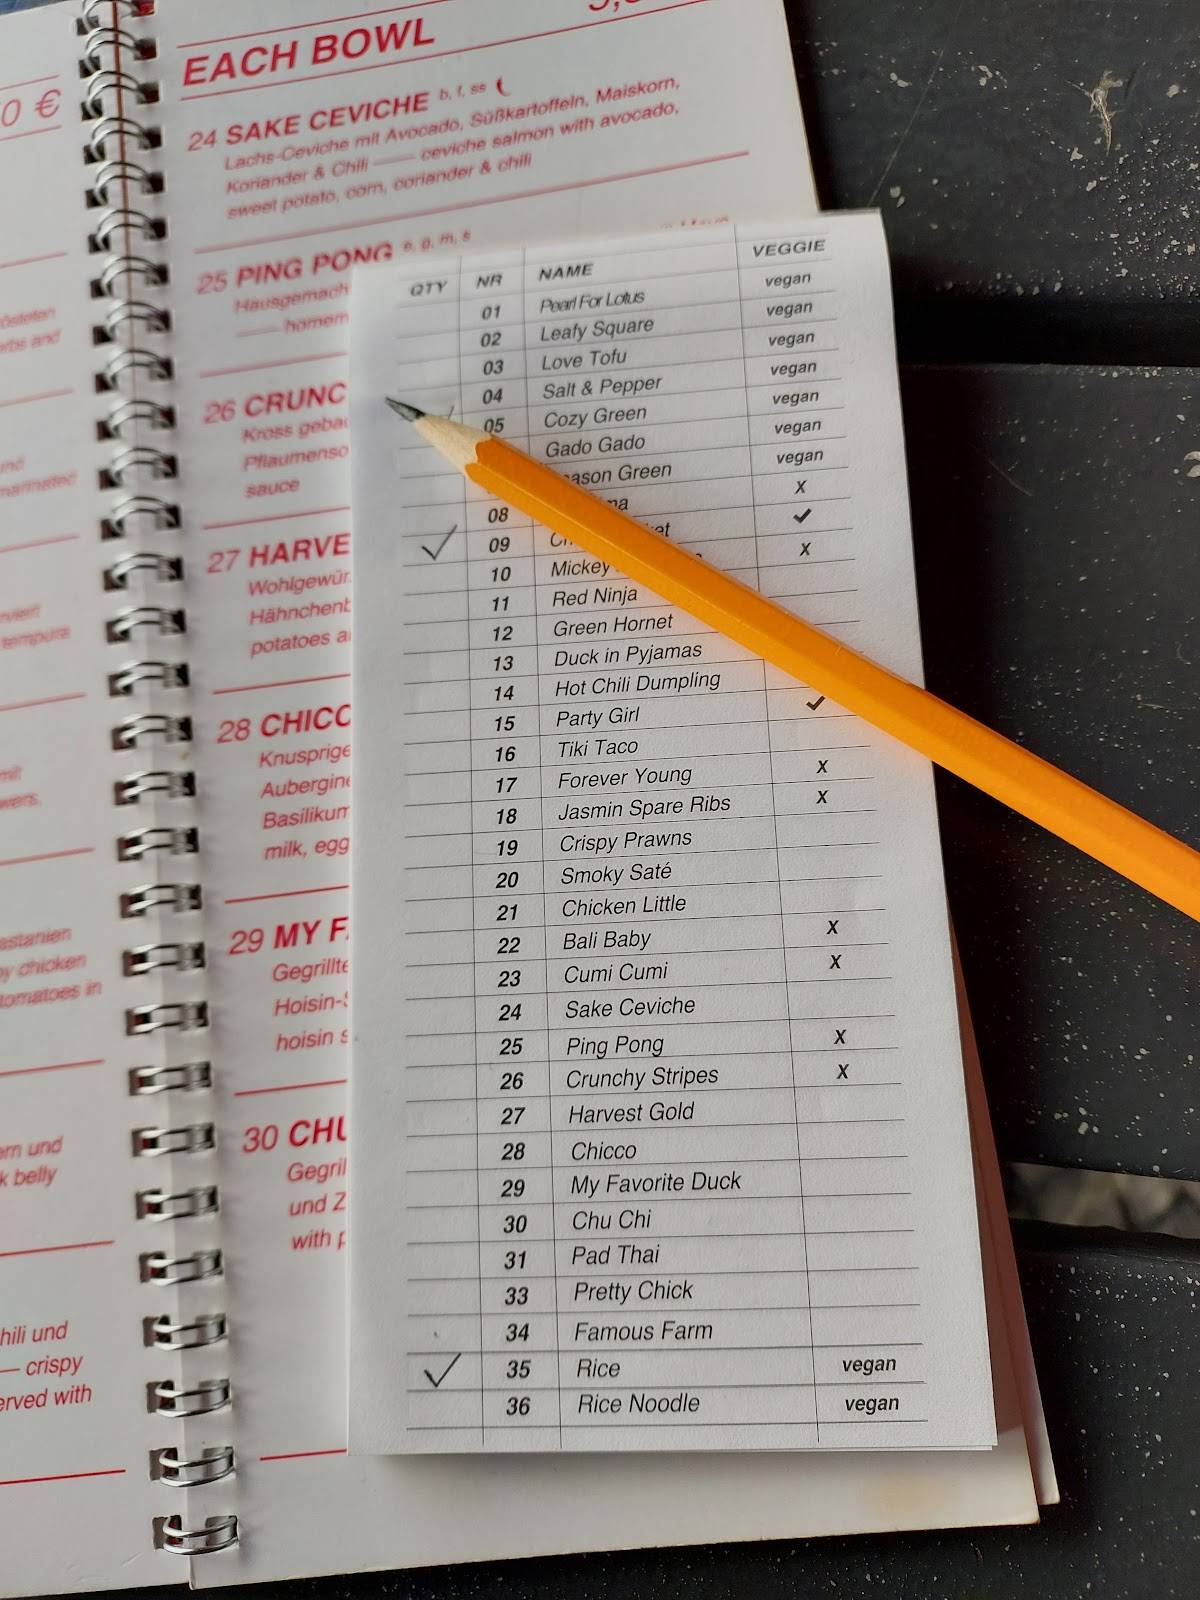 0 €
EACH BOWL
24 SAKE CEVICHE b, f, ss
Lachs-Ceviche mit Avocado, Süßkartoffeln, Maiskorn,
Koriander & Chili —— ceviche salmon with avocado,
sweet potato, corn, coriander & chili
25 PING PONG e, g, m, s
Hausgemach
—— homem
26 CRUNC
Kross geba
Pflaumenso
sauce
27 HARVE
Wohlgewür
Hähnchenb
potatoes a
28 CHICC
Knusprige
Aubergine
Basilikum
milk, egg
29 MY F
Gegrillte
Hoisin-S
hoisin s
30 CHU
Gegril
und Z
with p
rbs and
und
marinated
tempura
mit
wers,
astanien
y chicken
tomatoes in
ern und
k belly
hili und
— crispy
erved with
QTY NR NAME VEGGIE
01 Pearl For Lotus vegan
02 Leafy Square vegan
03 Love Tofu vegan
04 Salt & Pepper vegan
05 Cozy Green vegan
Gado Gado vegan
ason Green vegan
08 ma X
✓ 09 Ch ket ✓
10 Mickey X
11 Red Ninja
12 Green Hornet
13 Duck in Pyjamas
14 Hot Chili Dumpling
15 Party Girl ✓
16 Tiki Taco
17 Forever Young X
18 Jasmin Spare Ribs X
19 Crispy Prawns
20 Smoky Saté
21 Chicken Little
22 Bali Baby X
23 Cumi Cumi X
24 Sake Ceviche
25 Ping Pong X
26 Crunchy Stripes X
27 Harvest Gold
28 Chicco
29 My Favorite Duck
30 Chu Chi
31 Pad Thai
33 Pretty Chick
34 Famous Farm
✓ 35 Rice vegan
36 Rice Noodle vegan